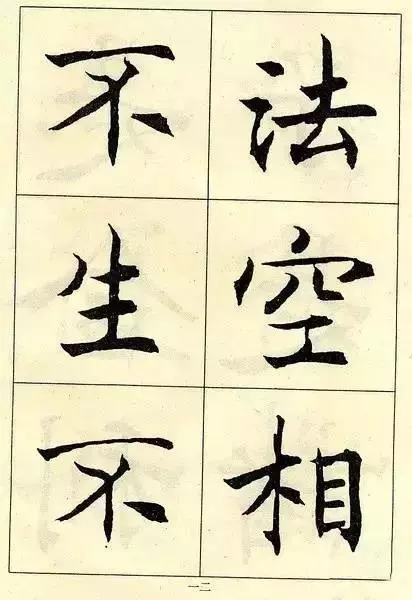 法空相
不生不
一二